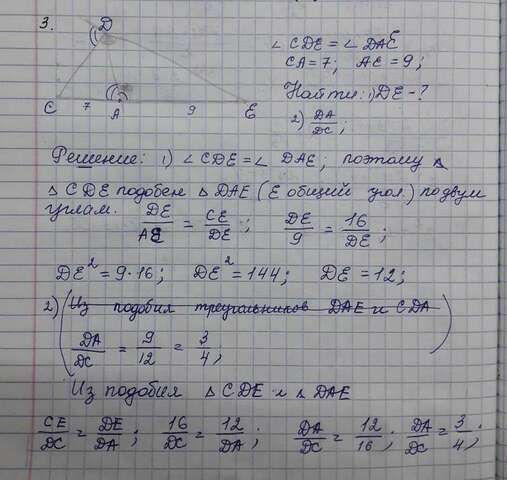 3.
D
C 7 A 9 E
∠CDE = ∠DAE
CA = 7; AE = 9;
Найти: 1) DE - ?
2) DA/DC;
Решение: 1) ∠CDE = ∠DAE; поэтому
△CDE подобен △DAE (E общий угол) по двум
углам. DE/AE = CE/DE; DE/9 = 16/DE;
DE² = 9·16; DE² = 144; DE = 12;
2) (Из подобия треугольников DAE и CDA
DA/DC = 9/12 = 3/4;)
Из подобия △CDE и △DAE
CE/DC = DE/DA; 16/DC = 12/DA; DA/DC = 12/16; DA/DC = 3/4;